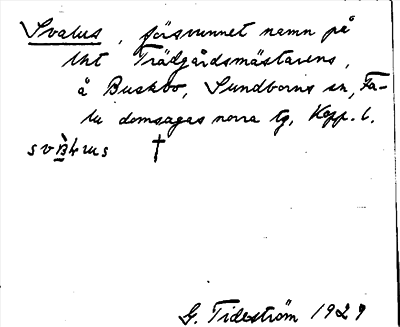 Svalus, försvunnet namn på
lht Trädgårdsmästarens,
å Buskbo, Sundborns sn, Fa-
lu domsagas norra tg, Kopp. l.
†
G. Tideström 1929